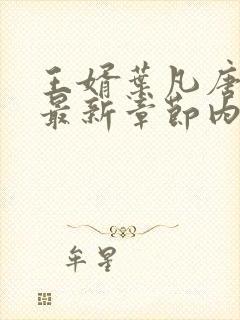 王婿葉凡唐
最新章節内
牟星